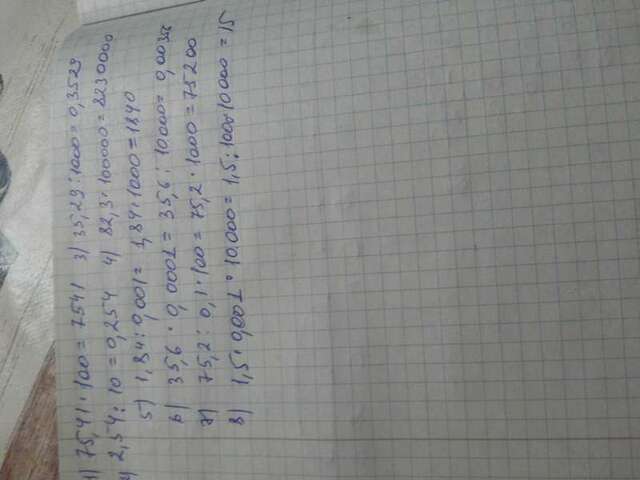 1) 75,41 · 100 = 7541 3) 35,29 : 1000 = 0,3529
2) 2,54 : 10 = 0,254 4) 82,3 · 100000 = 8230000
5) 1,84 : 0,001 = 1,84 · 1000 = 1840
6) 35,6 · 0,0001 = 35,6 : 10000 = 0,00356
7) 75,2 : 0,1 · 100 = 75,2 · 1000 = 75200
8) 1,5 · 0,001 · 10.000 = 1,5 : 1000 · 10000 = 15